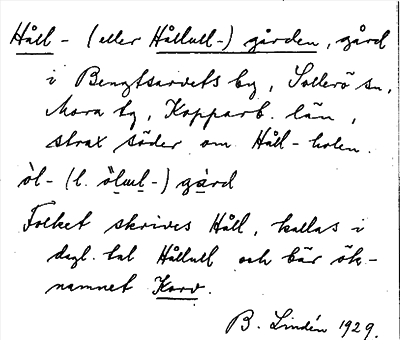 Håll- (eller Hållull-) gården, gård
i Bengtsarvets by, Sollerö sn,
Mora tg, Kopparb. län,
strax söder om Håll-holen.
òl- (l. òlul-) gård
Folket skrives Håll, kallas i
dagl. tal Hållull och bär ök-
namnet Korv.
B. Lindén 1929.